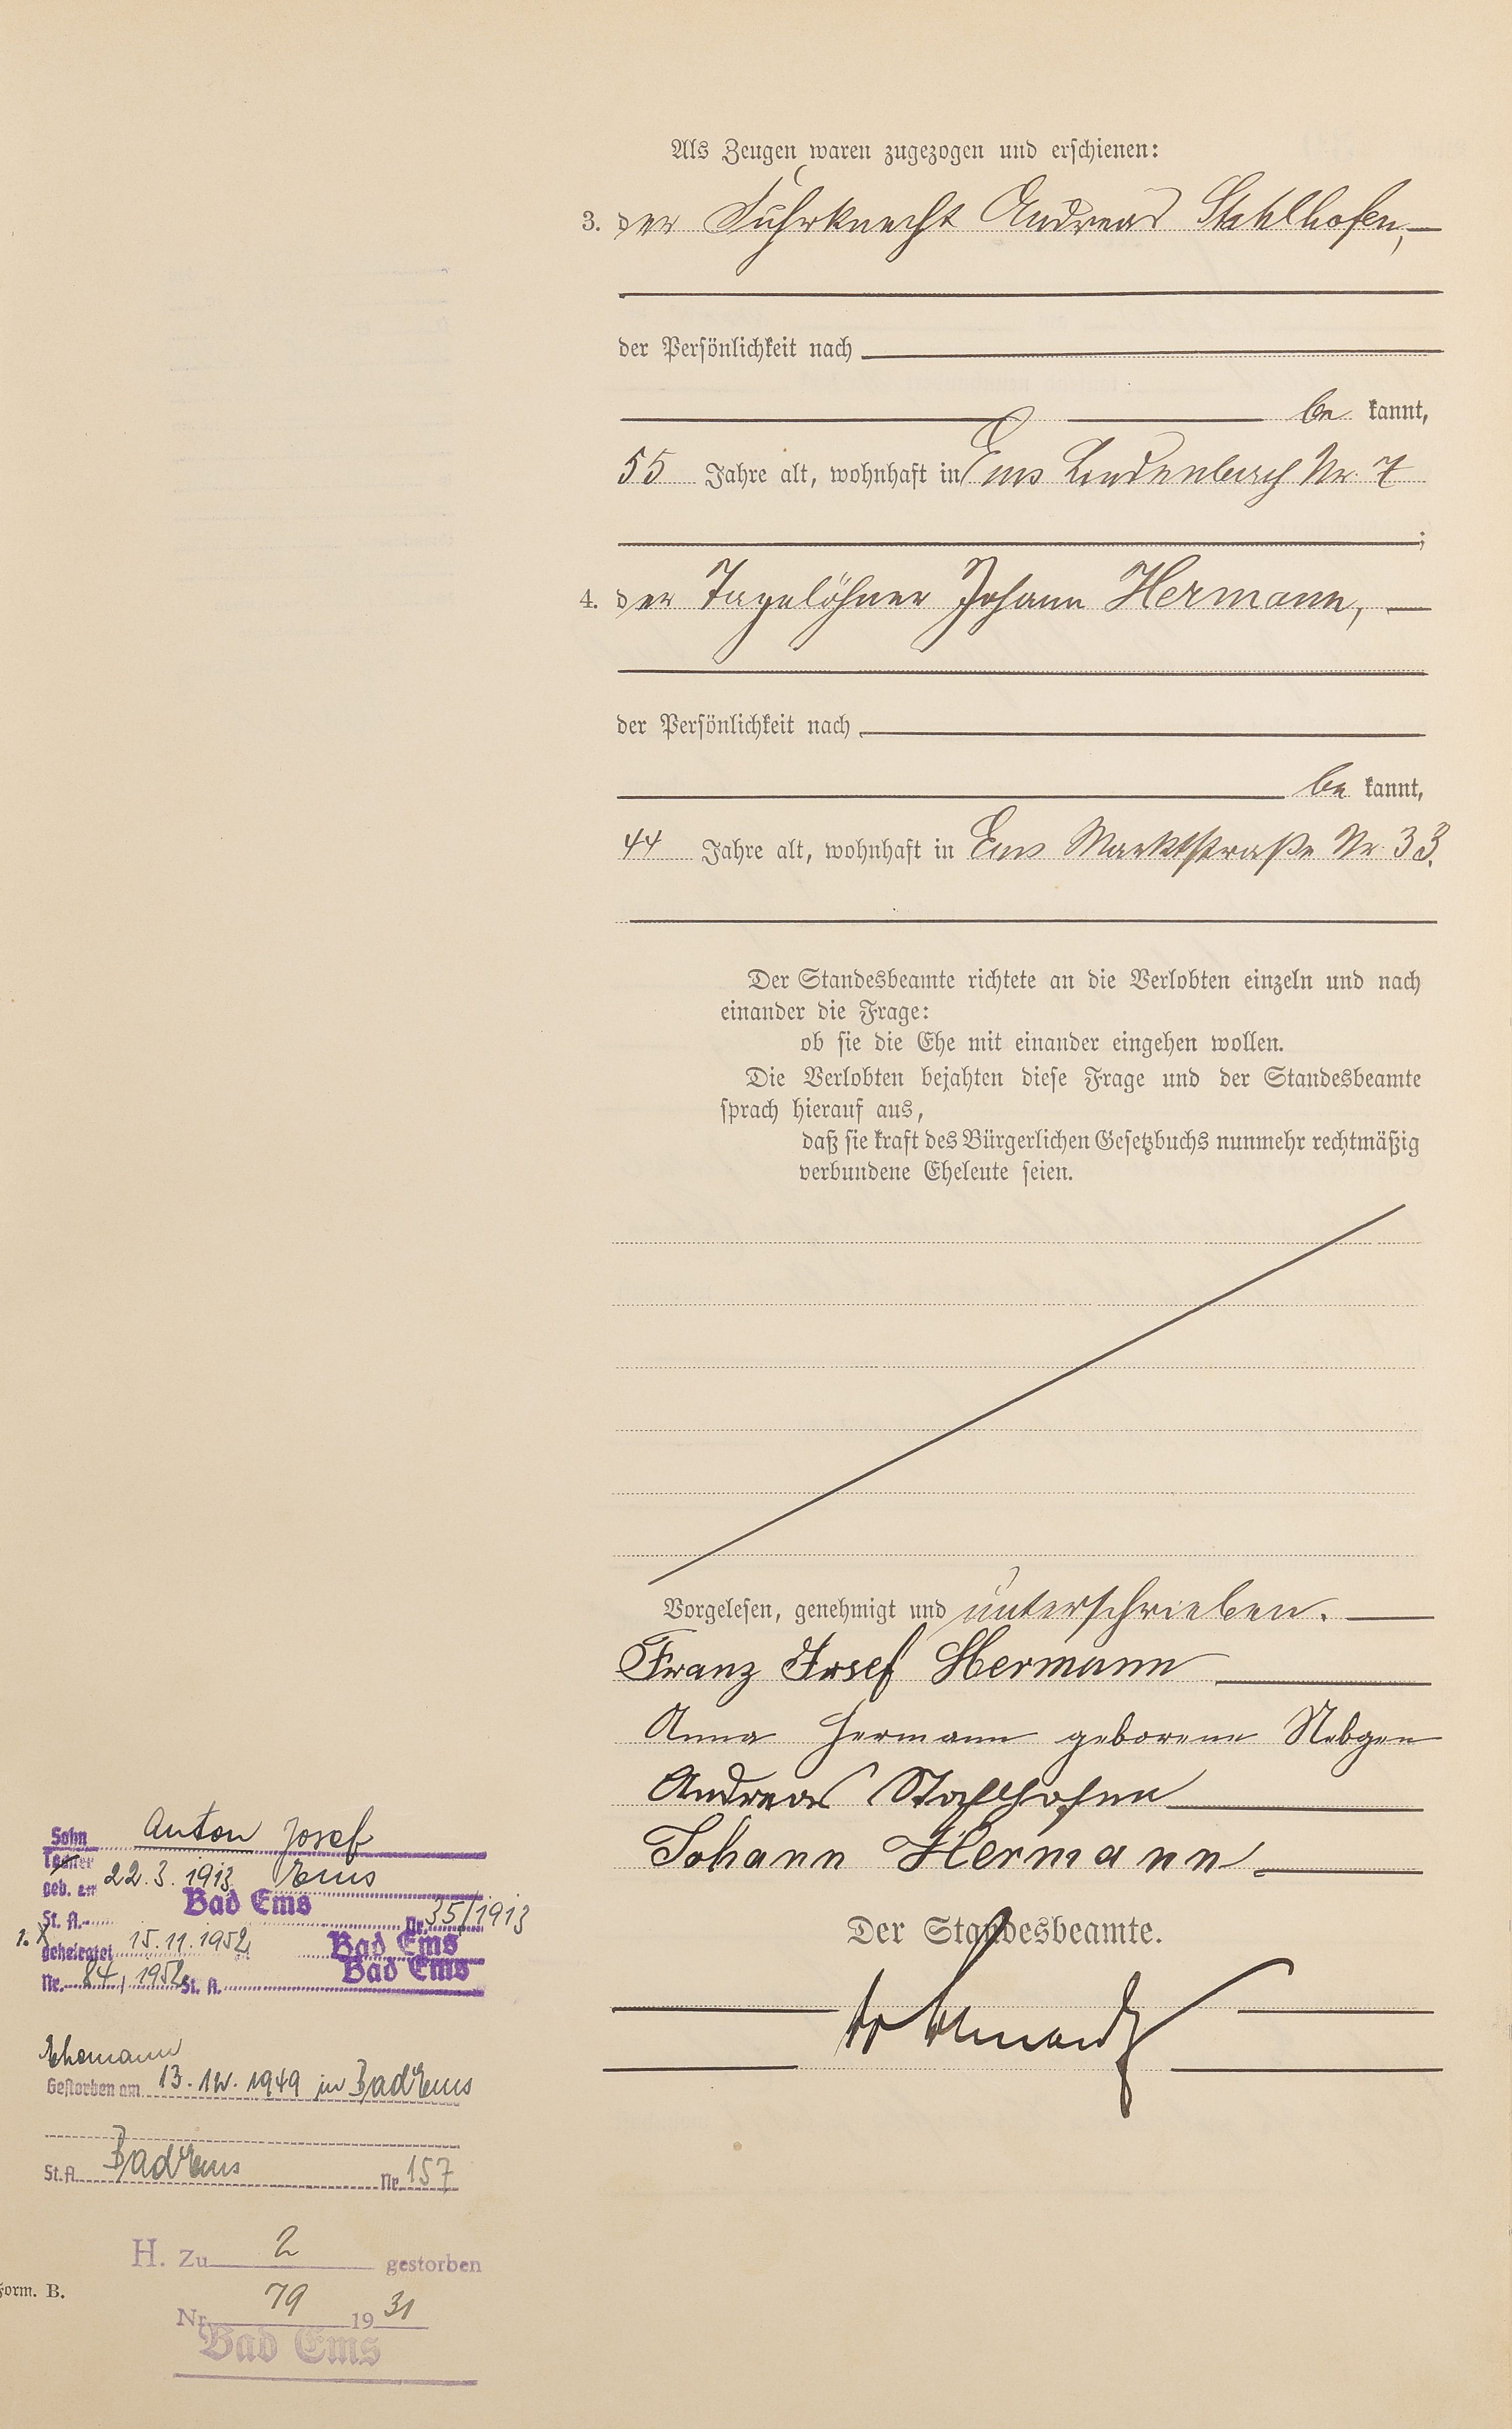 Als Zeugen waren zugezogen und erschienen:
3. der Fuhrknecht Andreas Stahlhofen,
der Persönlichkeit nach
be kannt,
55 Jahre alt, wohnhaft in Ems Lindenbach Nr. 7
;
4. der Tagelöhner Johann Hermann,
der Persönlichkeit nach
be kannt,
44 Jahre alt, wohnhaft in Ems Marktstraße Nr. 33.
Der Standesbeamte richtete an die Verlobten einzeln und nach
einander die Frage:
ob sie die Ehe mit einander eingehen wollen.
Die Verlobten bejahten diese Frage und der Standesbeamte
sprach hierauf aus,
daß sie kraft des Bürgerlichen Gesetzbuchs nunmehr rechtmäßig
verbundene Eheleute seien.
Vorgelesen, genehmigt und unterschrieben.
Franz Josef Hermann
Anna Hermann geborene Nebgen
Andreas Stahlhofen
Johann Hermann
Der Standesbeamte.
Sohn Anton Josef
Tochter
geb. am 22.3.1913 Ems
St. A. Bad Ems Nr. 35/1913
1. X geheiratet 15.11.1952 Bad Ems
Nr. 84, 1952 St. A. Bad Ems
Ehemann
Gestorben am 13.12.1949 in Bad Ems
St. A. Bad Ems Nr. 157
H. Zu 2 gestorben
Nr. 79 1931
Bad Ems
Form. B.